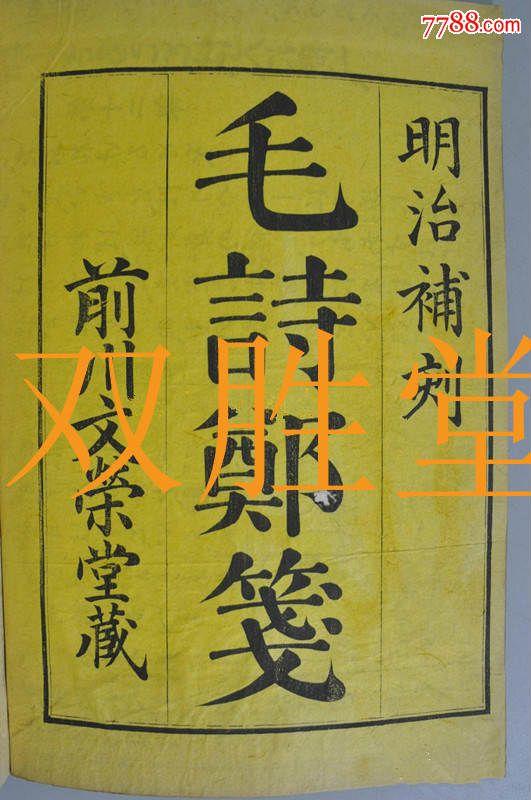 7788.com
明治補刻
毛詩鄭箋
前川文榮堂藏
双胜堂